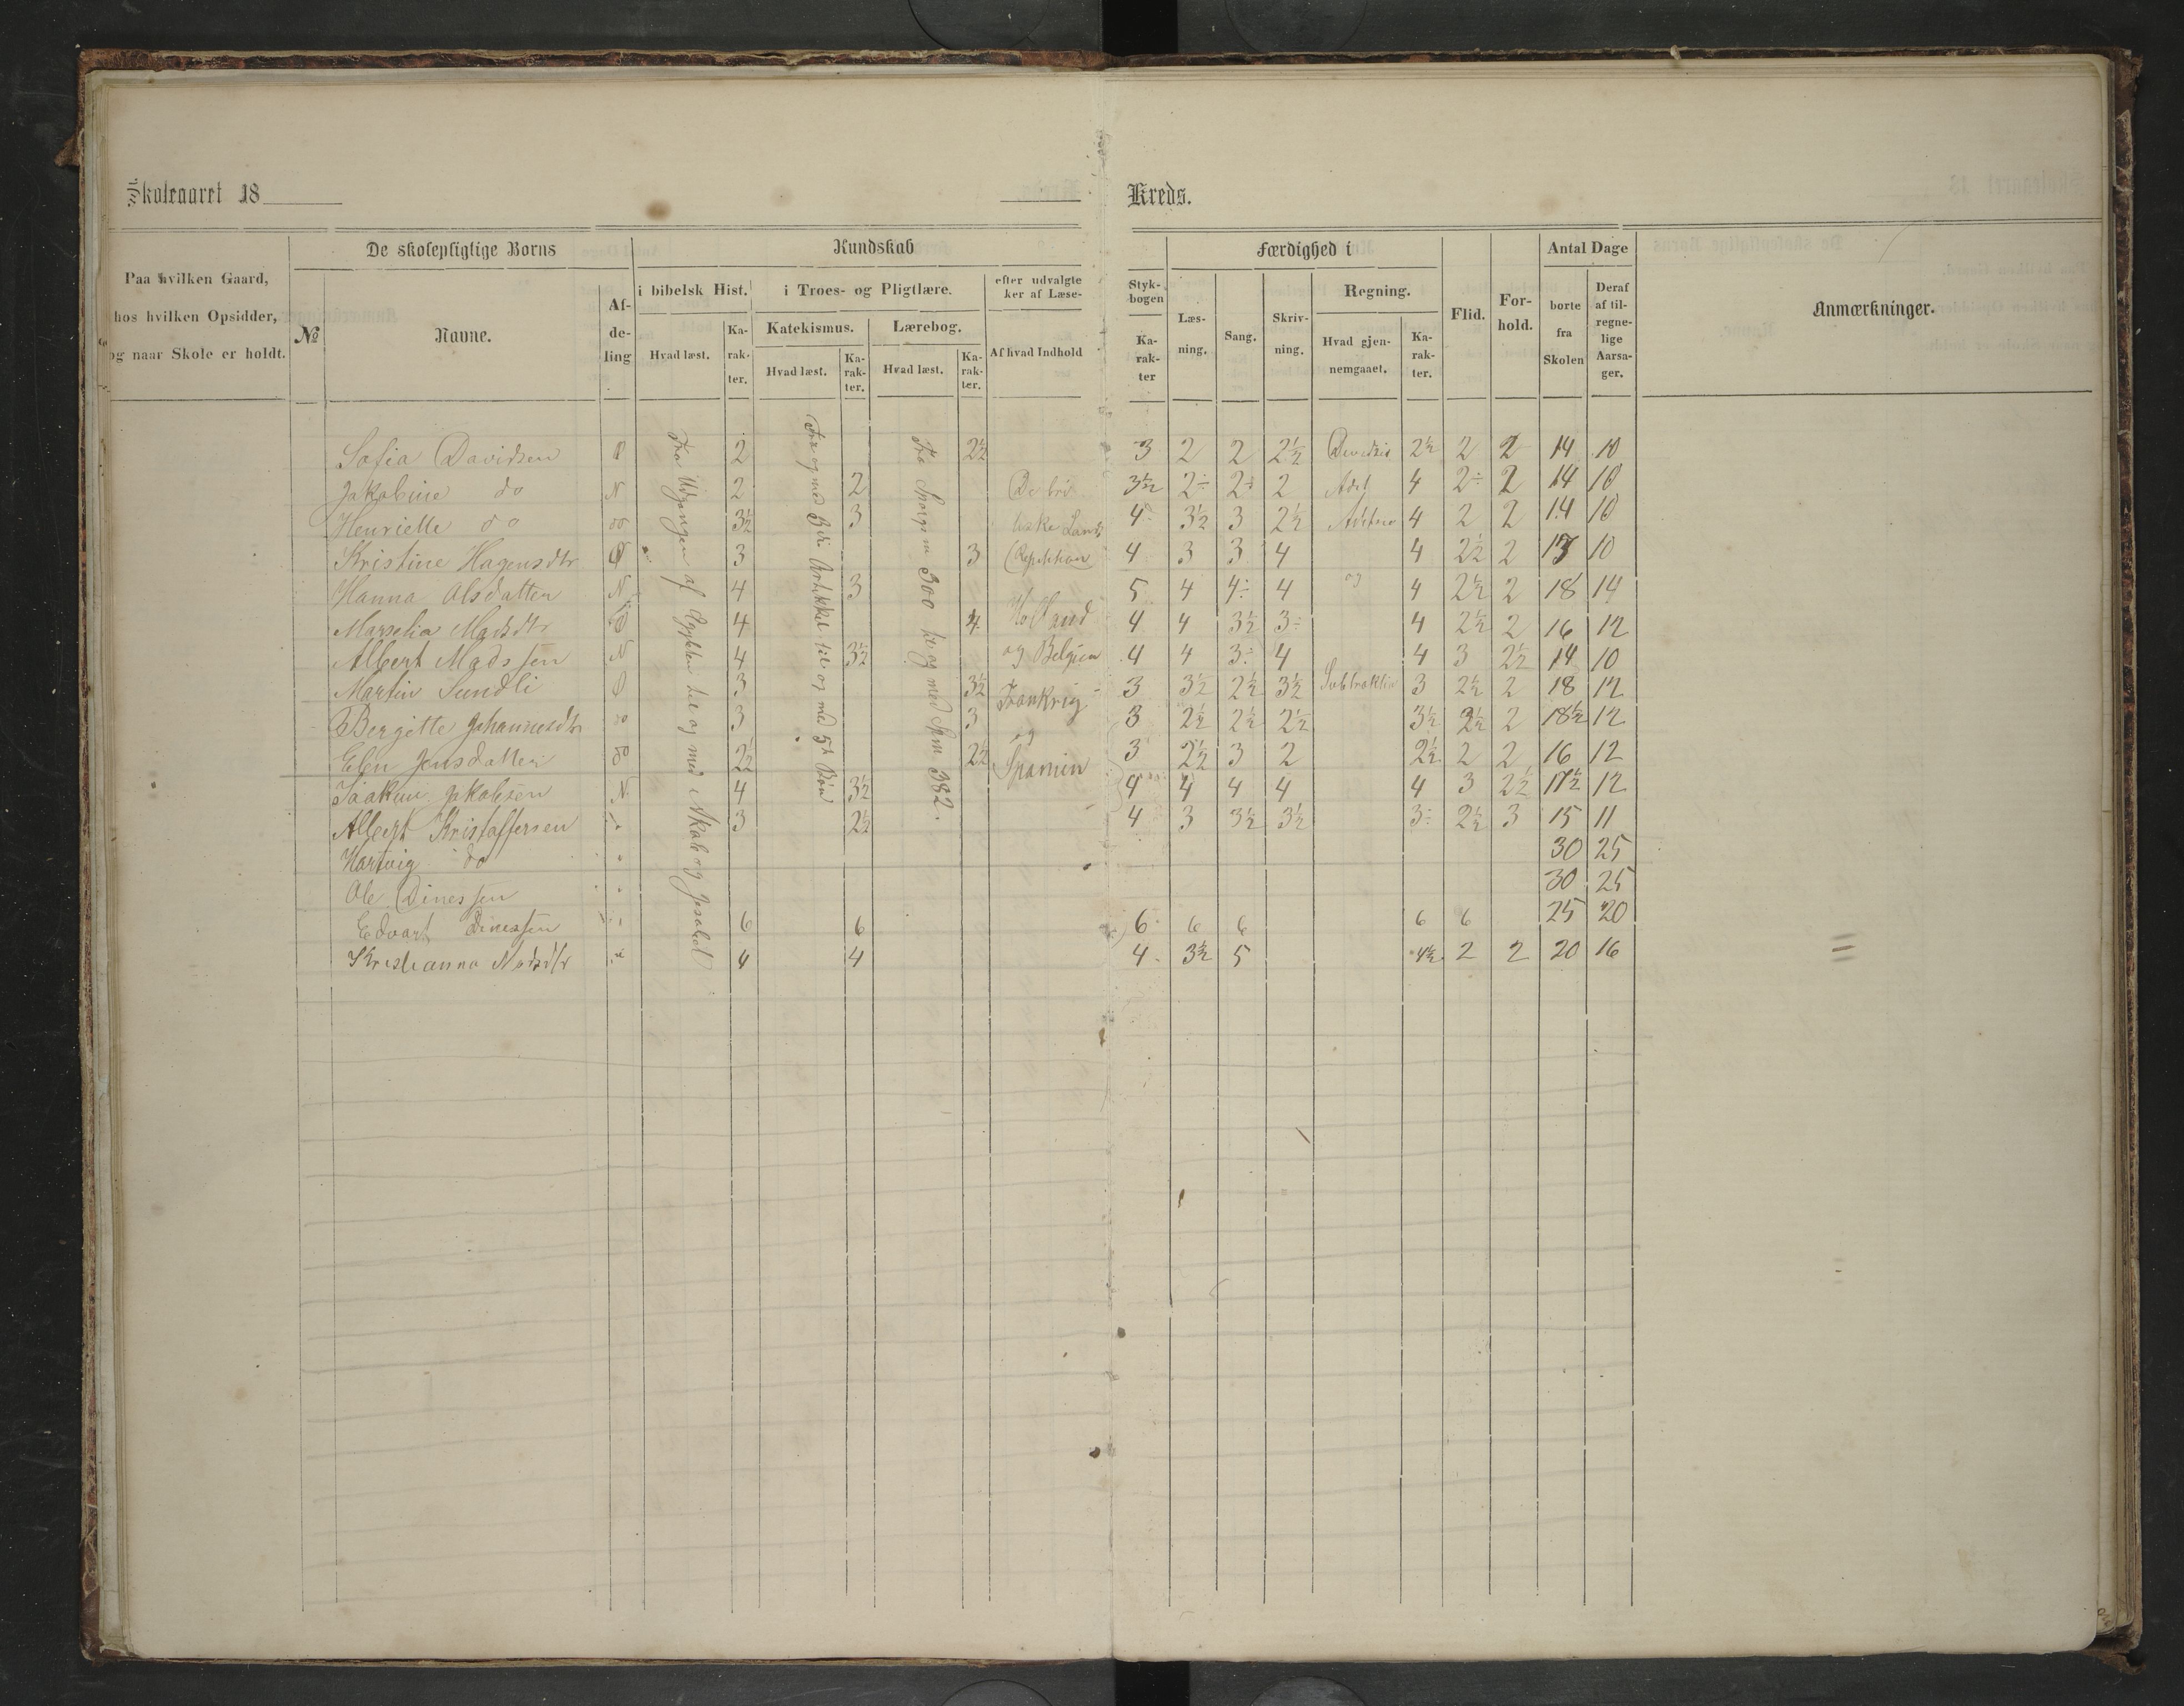 Skoleaaret 18
Kreds.
Paa hvilken Gaard,
hos hvilken Opsidder,
og naar Skole er holdt.
De skolepligtige Børns
№
Navne.
Af-
de-
ling
Kundskab
i bibelsk Hist.
Hvad læst.
Ka-
rak-
ter.
i Troes- og Pligtlære.
Katekismus.
Hvad læst.
Ka-
rak-
ter.
Lærebog.
Hvad læst.
Ka-
rak-
ter.
efter udvalgte
ker af Læse-
Af hvad Indhold
Styk-
bogen
Ka-
rak-
ter
Færdighed i
Læs-
ning.
Sang.
Skriv-
ning.
Regning.
Hvad gjen-
nemgaaet.
Ka-
rak-
ter.
Flid.
For-
hold.
Antal Dage
borte
fra
Skolen
Deraf
af til-
regne-
lige
Aarsa-
ger.
Anmærkninger.
Fra Udgangen af Ægypten til og med Nikab og Jesabel
Fra og med 3die Artikkel til og med 5te Bøn
Fra Spørgsm 300 til og med Spm. 382.
Sofia Davidsen Ø 2 2½ 3 2 2 2½ 2½ 2 2 14 10
Jakobine do N 2 2 De bri 3½ 2÷ 2÷ 2 Adet 4 2÷ 2 14 10
Henriette do do 3½ 3 tiske Lande 4 3½ 3 2½ 4 2 2 14 10
Kristine Hagensdtr Ø 3 3 (Repetition) 4 3 3 4 4 2½ 2 13 10
Hanna Olsdatter N 4 3 5 4 4÷ 4 og 4 2½ 2 18 14
Marselia Madsdtr Ø 4 4 Holland 4 4 3½ 3÷ 4 2½ 2 16 12
Albert Madssen N 4 3½ og Belgien 4 4 3÷ 4 4 3 2½ 14 10
Martin Sundli Ø 3 3½ Frankrig 3 3½ 2½ 3½ Subtraktion 3 2½ 2 18 12
Bergitte Johannesdtr do 3 3 og 3 2½ 2½ 2½ 3½ 2½ 2 18½ 12
Elen Jensdatter do 2½ 2½ Spanien 3 2½ 3 2 2½ 2 2 16 12
Joakim Jakobsen N 4 3½ 4 4 4 4 4 3 2½ 17½ 12
Albert Kristoffersen 3 2½ 4 3 3½ 3½ 3÷ 2½ 3 15 11
Hartvig do 30 25
Ole Dinessen 30 25
Edvart Dinessen 6 6 6 6 6 6 6 25 20
Kristianna Madsdtr 4 4 4 3½ 5 4½ 2 2 20 16